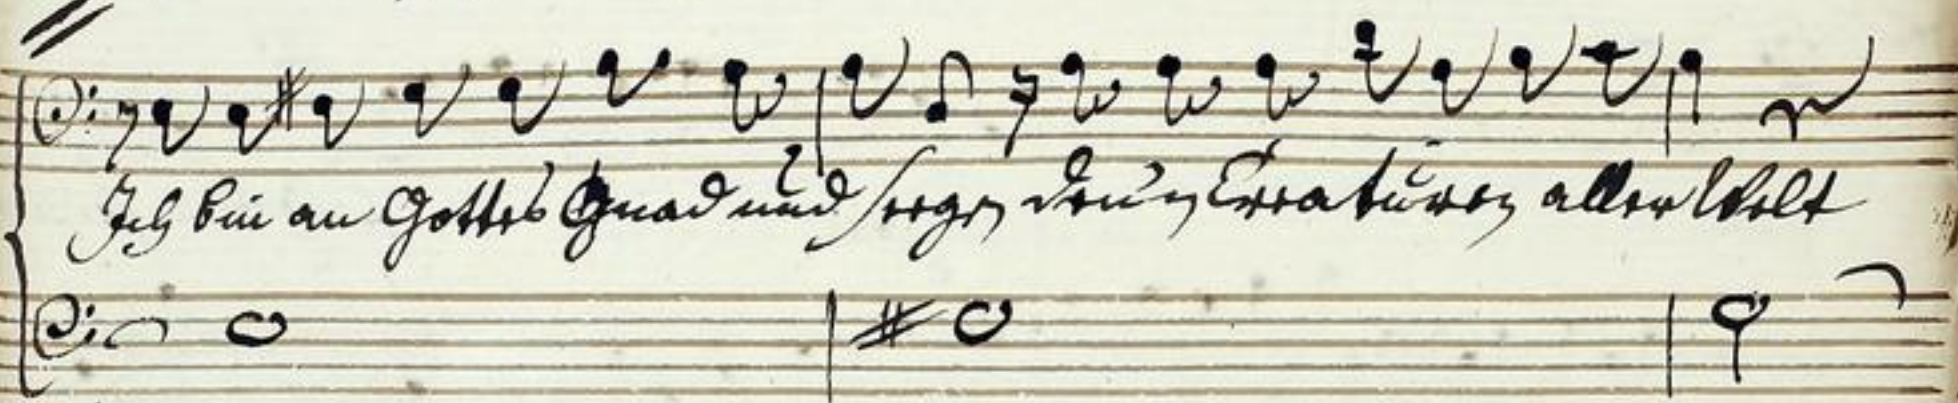 Ich bin an Gottes Gnad und seegen denen Creaturen aller Welt